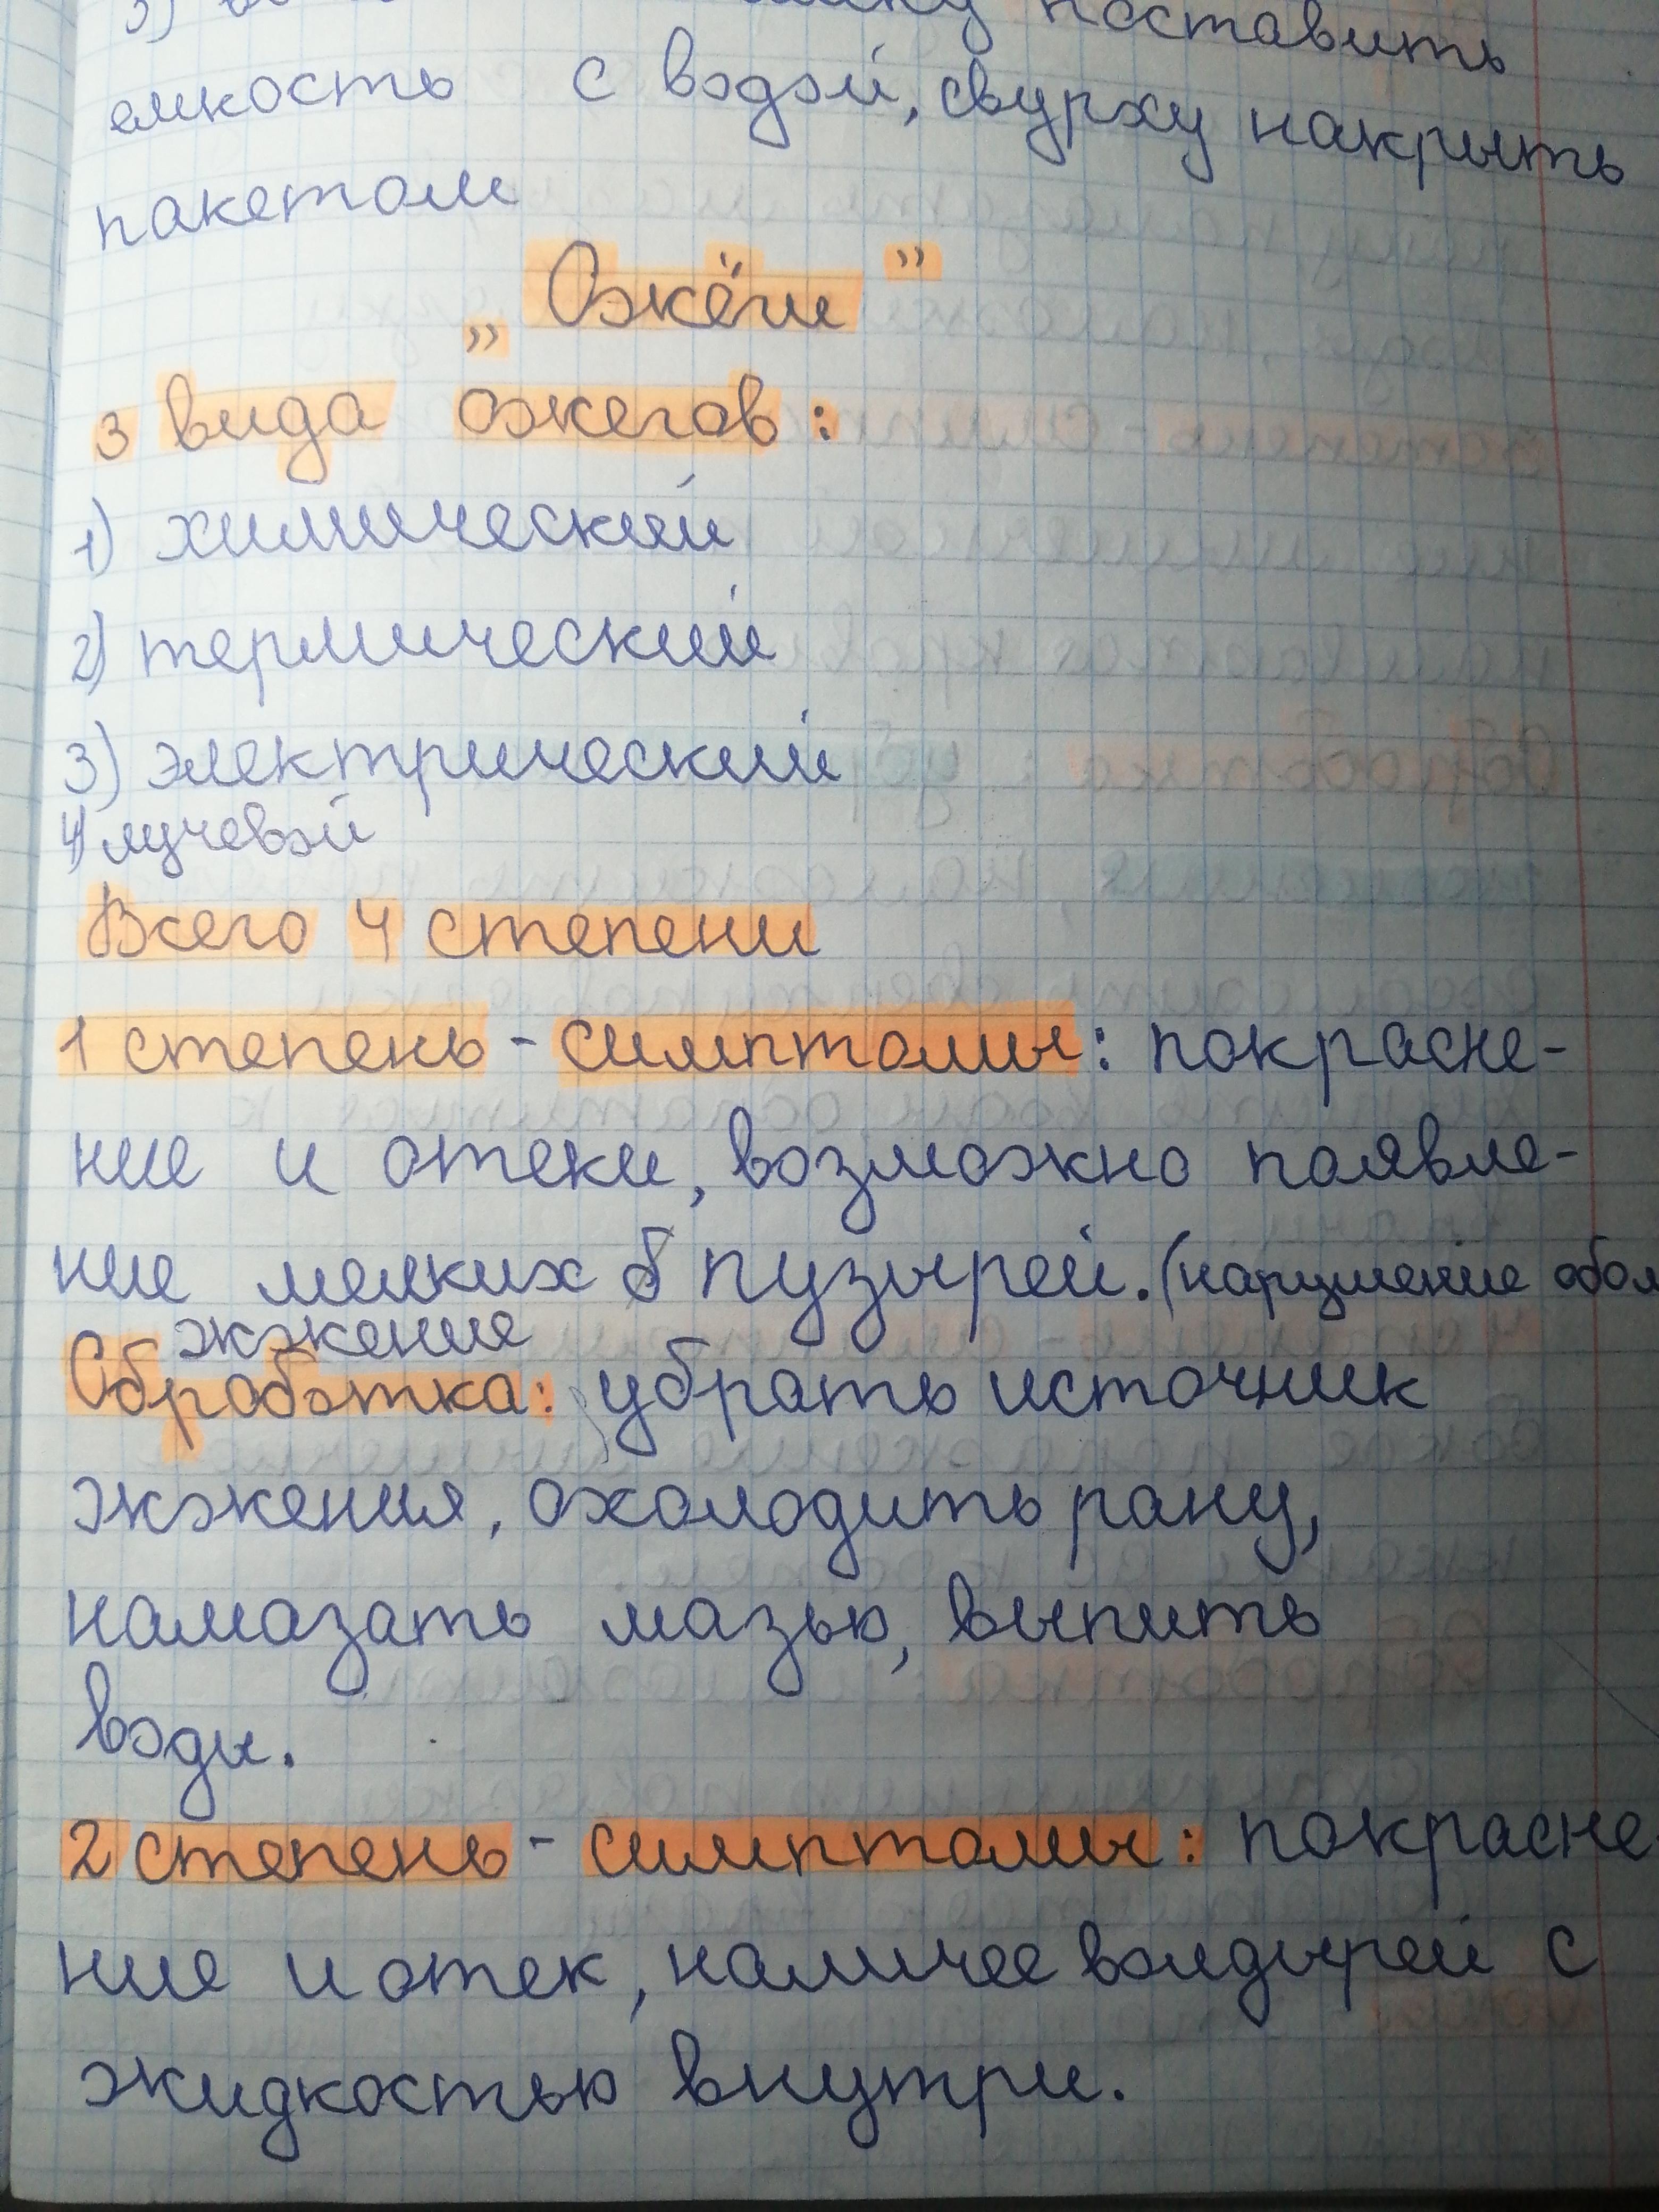 поставить
емкость с водой, свурху накрыть
пакетом
„Ожёги”
3 вида ожегов:
1) химический
2) термический
3) электрический
4) лучевой
Всего 4 степени
1 степень - симптомы: покрасне-
ние и отеки, возможно появле-
ние мелких б пузырей. (нарушение обол
жжение
Обработка: убрать источник
жжения, охолодить рану,
намазать мазью, выпить
воды.
2 степень - симптомы: покрасне-
ние и отек, наличее волдырей с
жидкостью внутри.